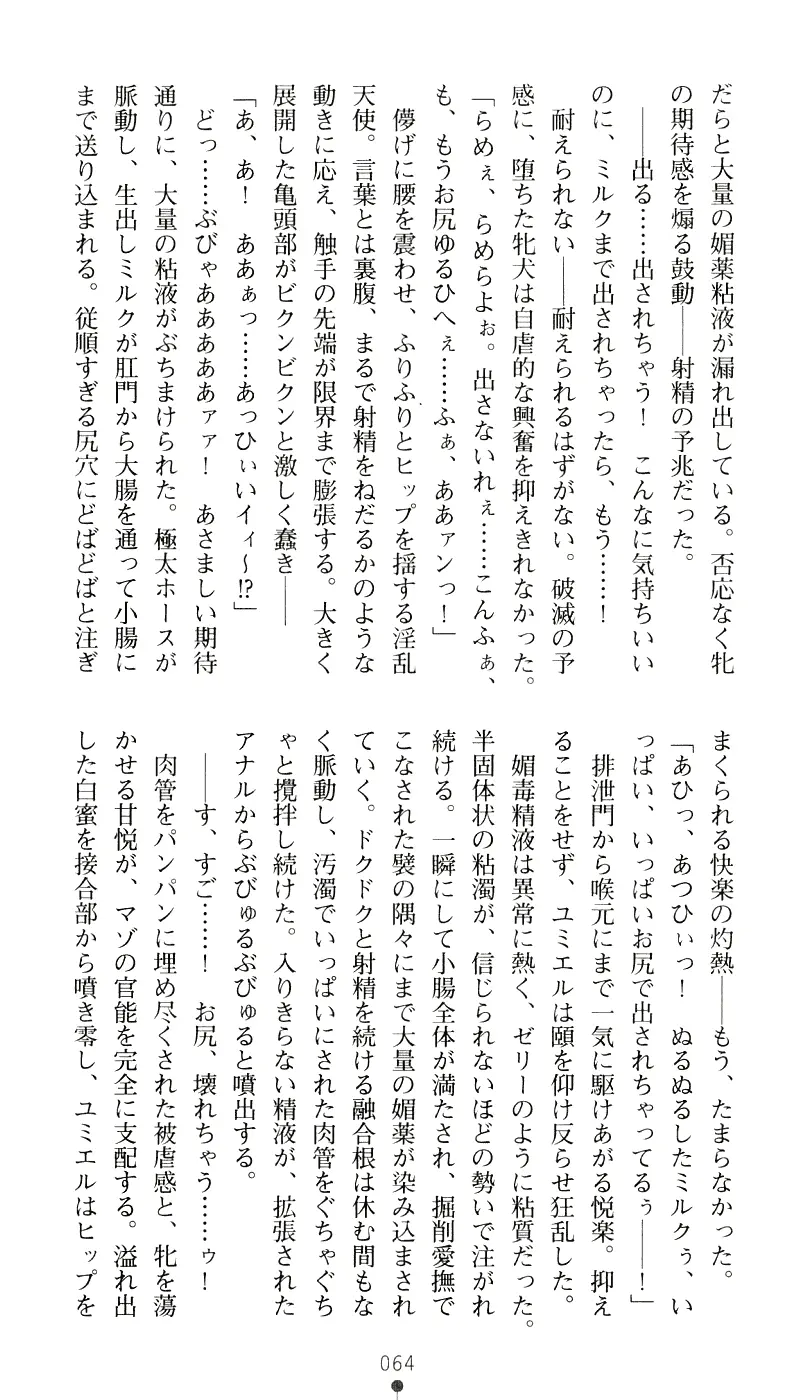 だらと大量の媚薬粘液が漏れ出している。否応なく牝
の期待感を煽る鼓動――射精の予兆だった。
――出る……出されちゃう！　こんなに気持ちいい
のに、ミルクまで出されちゃったら、もう……！
耐えられない――耐えられるはずがない。破滅の予
感に、堕ちた牝犬は自虐的な興奮を抑えきれなかった。
「らめぇ、らめらよぉ。出さないれぇ……こんふぁ、
も、もうお尻ゆるひへぇ……ふぁ、ああァンっ！」
儚げに腰を震わせ、ふりふりとヒップを揺する淫乱
天使。言葉とは裏腹、まるで射精をねだるかのような
動きに応え、触手の先端が限界まで膨張する。大きく
展開した亀頭部がビクンビクンと激しく蠢き――
「あ、あ！　ああぁっ……あっひぃいイィ〜!?」
どっ……ぶびゃあああああァァ！　あさましい期待
通りに、大量の粘液がぶちまけられた。極太ホースが
脈動し、生出しミルクが肛門から大腸を通って小腸に
まで送り込まれる。従順すぎる尻穴にどばどばと注ぎ
まくられる快楽の灼熱――もう、たまらなかった。
「あひっ、あつひぃっ！　ぬるぬるしたミルクぅ、い
っぱい、いっぱいお尻で出されちゃってるぅ――！」
排泄門から喉元にまで一気に駆けあがる悦楽。抑え
ることをせず、ユミエルは頤を仰け反らせ狂乱した。
媚毒精液は異常に熱く、ゼリーのように粘質だった。
半固体状の粘濁が、信じられないほどの勢いで注がれ
続ける。一瞬にして小腸全体が満たされ、掘削愛撫で
こなされた襞の隅々にまで大量の媚薬が染み込まされ
ていく。ドクドクと射精を続ける融合根は休む間もな
く脈動し、汚濁でいっぱいにされた肉管をぐちゃぐち
ゃと攪拌し続けた。入りきらない精液が、拡張された
アナルからぶびゅるぶびゅると噴出する。
――す、すご……！　お尻、壊れちゃう……ゥ！
肉管をパンパンに埋め尽くされた被虐感と、牝を蕩
かせる甘悦が、マゾの官能を完全に支配する。溢れ出
した白蜜を接合部から噴き零し、ユミエルはヒップを
064